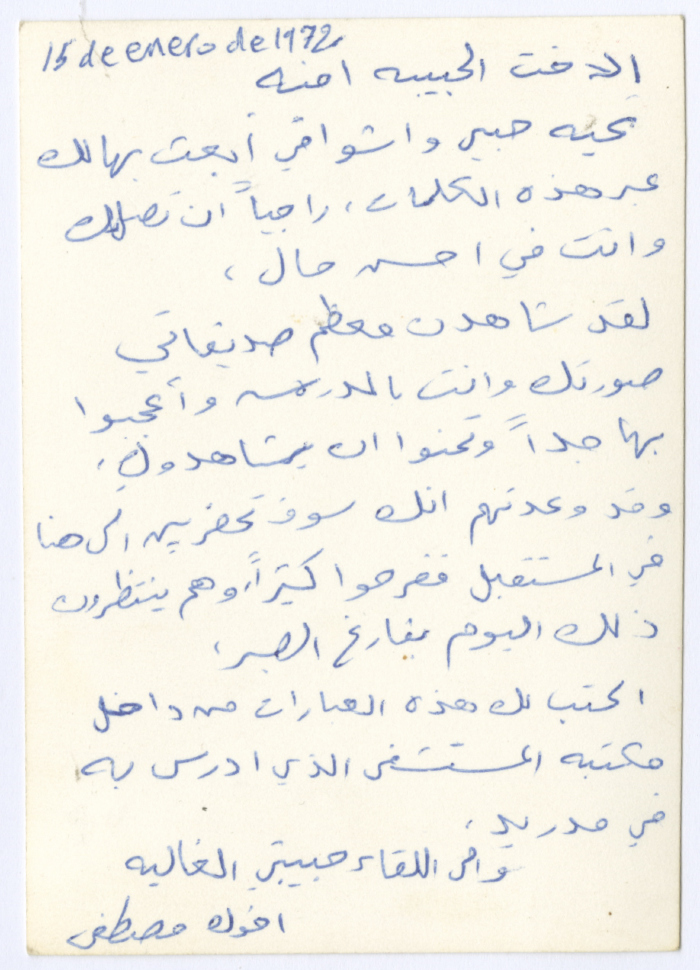 15 de enero de 1972
الاخت الحبيبه امنه
تحيه حبي واشواقي أبعث بها لك
عبر هذه الكلمات، راجياً ان تصلك
وانت في احسن حال،
لقد شاهدن معظم صديقاتي
صورتك وانت بالمدرسه وأعجبوا
بها جداً وتمنوا ان يشاهدوك،
وقد وعدتهم انك سوف تحضرين الى هنا
في المستقبل ففرحوا كثيراً، وهم ينتظرون
ذلك اليوم بفارغ الصبر،
اكتب لك هذه العبارات من داخل
مكتبه المستشفى الذي ادرس به
في مدريد،
والى اللقاء حبيبتي الغاليه
اخوك مصطفى